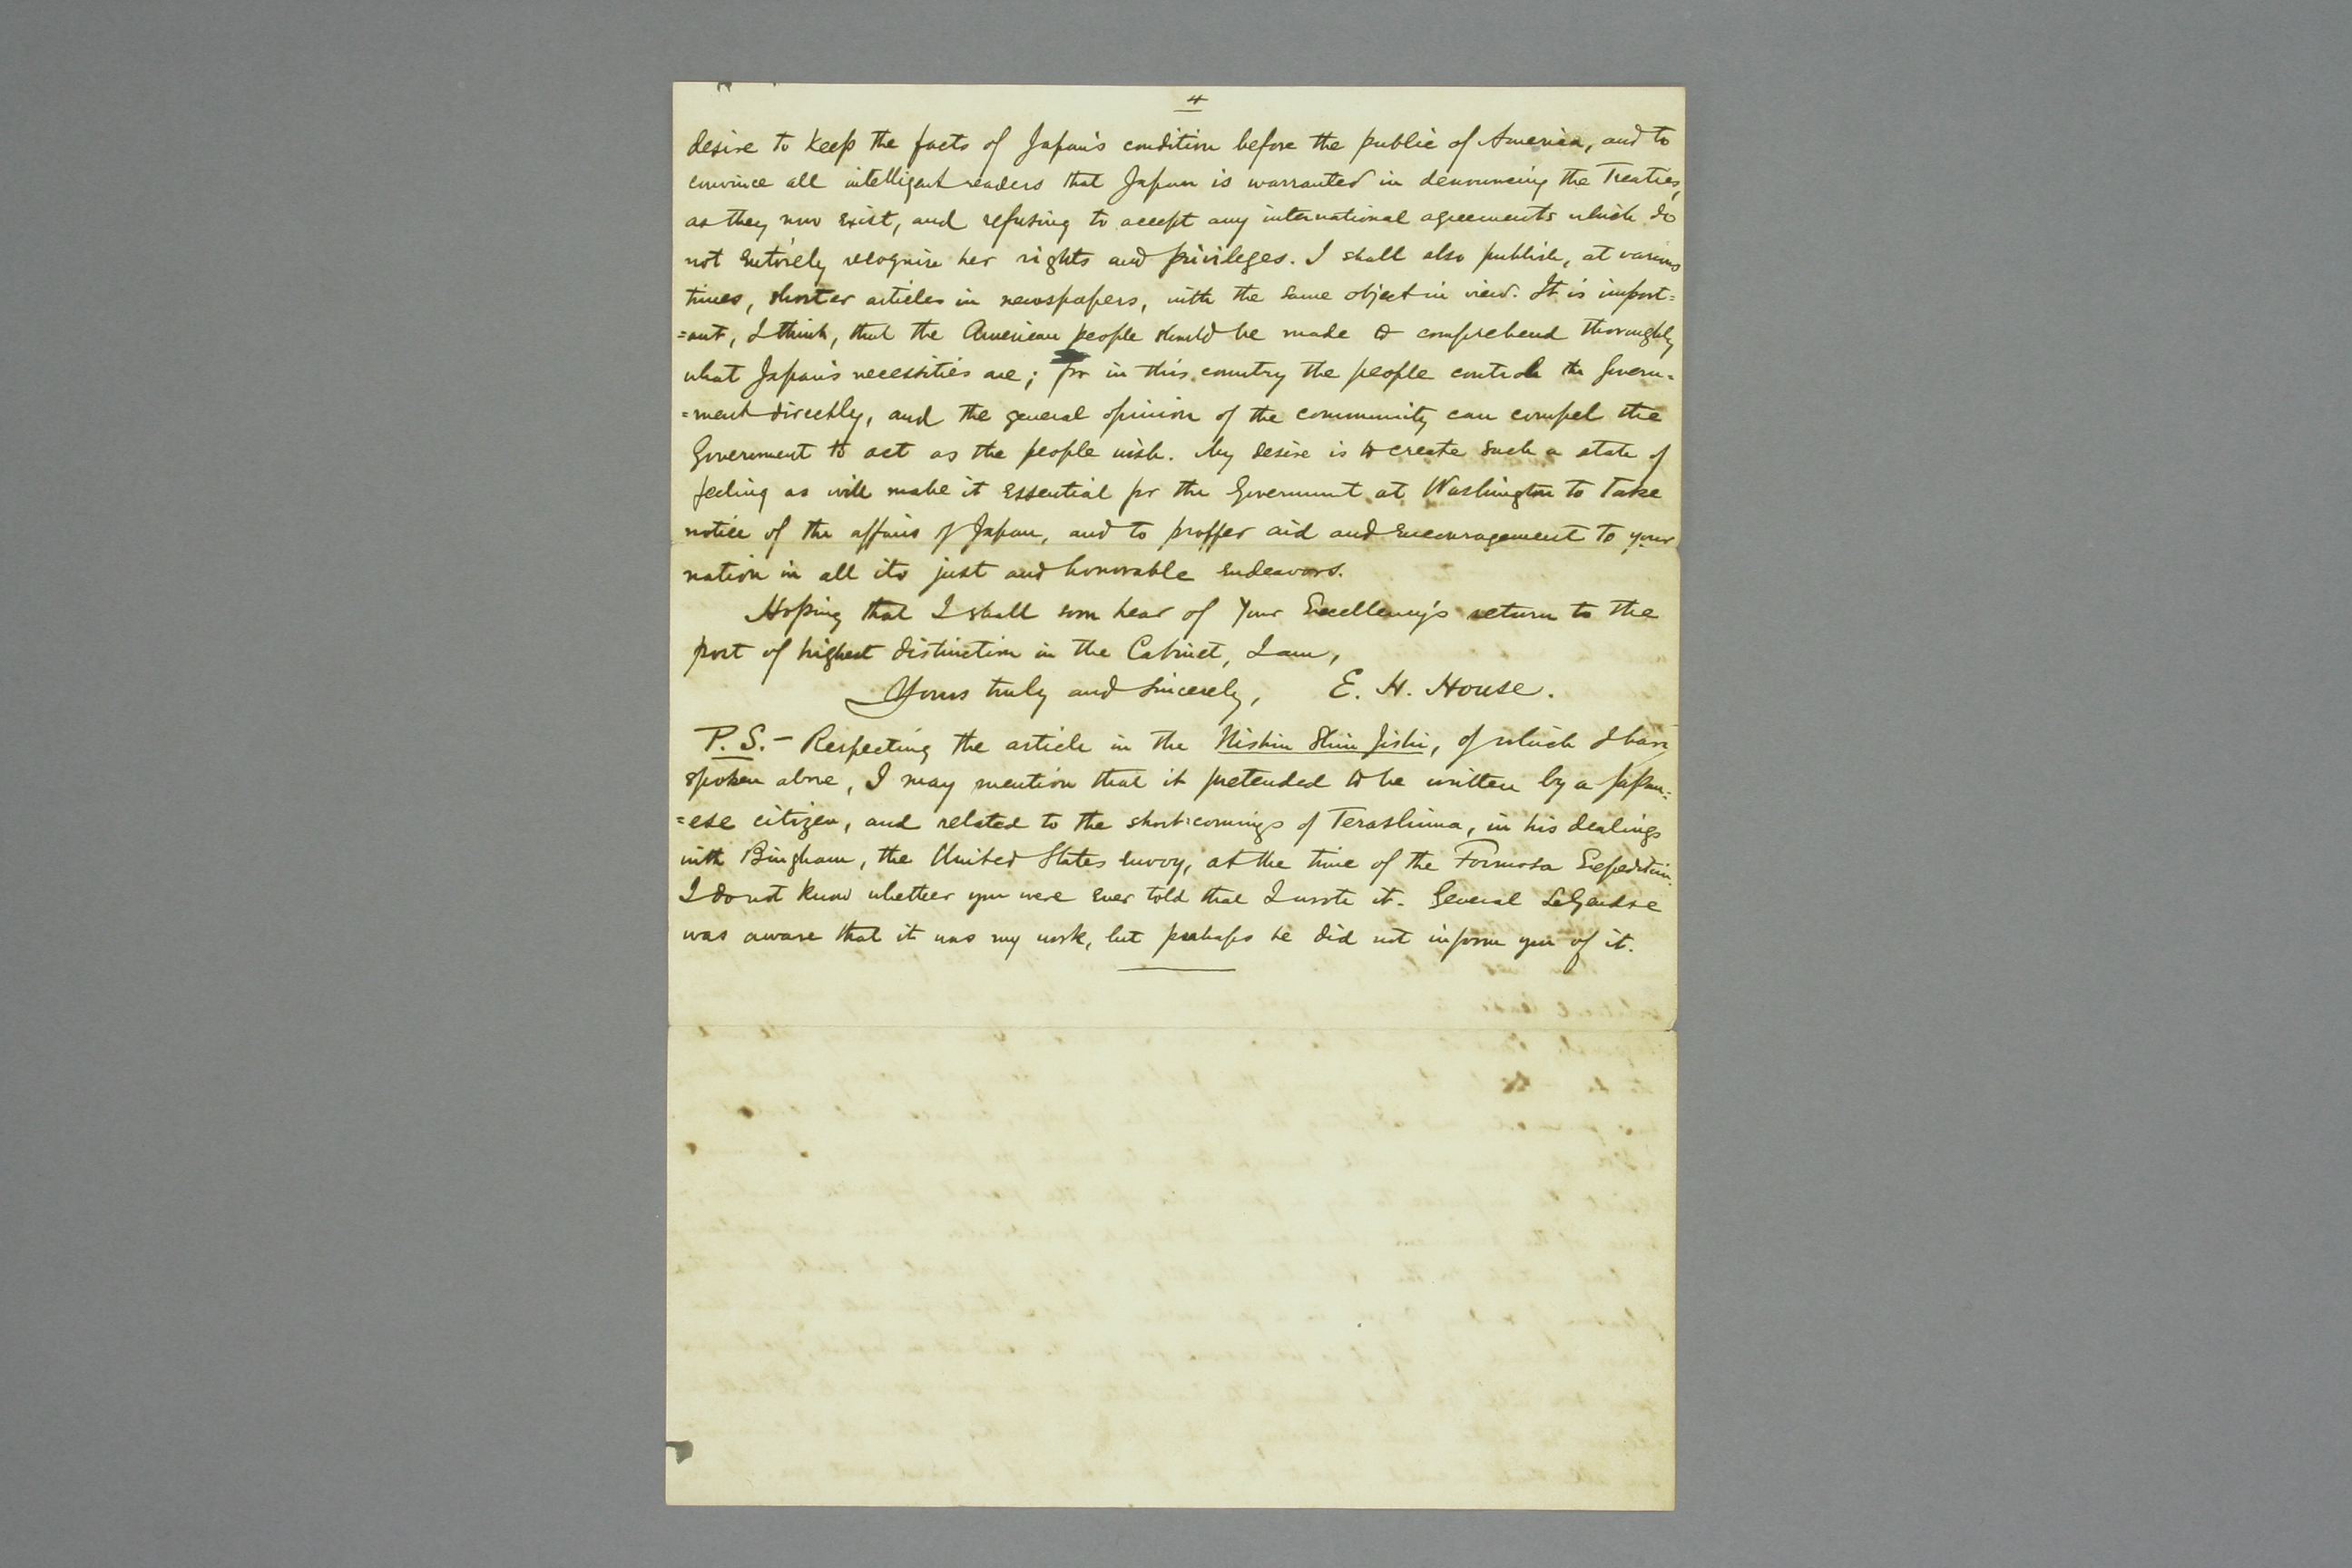 4
desire to keep the facts of Japan's condition before the public of America, and to
convince all intelligent readers that Japan is warranted in denouncing the Treaties,
as they now exist, and refusing to accept any international agreements which do
not entirely recognize her rights and privileges. I shall also publish, at various
times, shorter articles in newspapers, with the same object in view. It is import=
=ant, I think, that the American people should be made to comprehend thoroughly
what Japan's necessities are; for in this country the people control the Govern=
=ment directly, and the general opinion of the community can compel the
Government to act as the people wish. My desire is to create such a state of
feeling as will make it essential for the Government at Washington to take
notice of the affairs of Japan, and to proffer aid and encouragement to your
nation in all its just and honorable endeavors.
Hoping that I shall soon hear of Your Excellency's return to the
post of highest distinction in the Cabinet, I am,
Yours truly and sincerely, E. H. House.
P.S.- Respecting the article in the Nishin Shin Jishi, of which I have
spoken above, I may mention that it pretended to be written by a Japan=
=ese citizen, and related to the short-comings of Terashima, in his dealings
with Bingham, the United States envoy, at the time of the Formosa Expedition.
I do not know whether you were ever told that I wrote it. General LeGendre
was aware that it was my work, but perhaps he did not inform you of it.